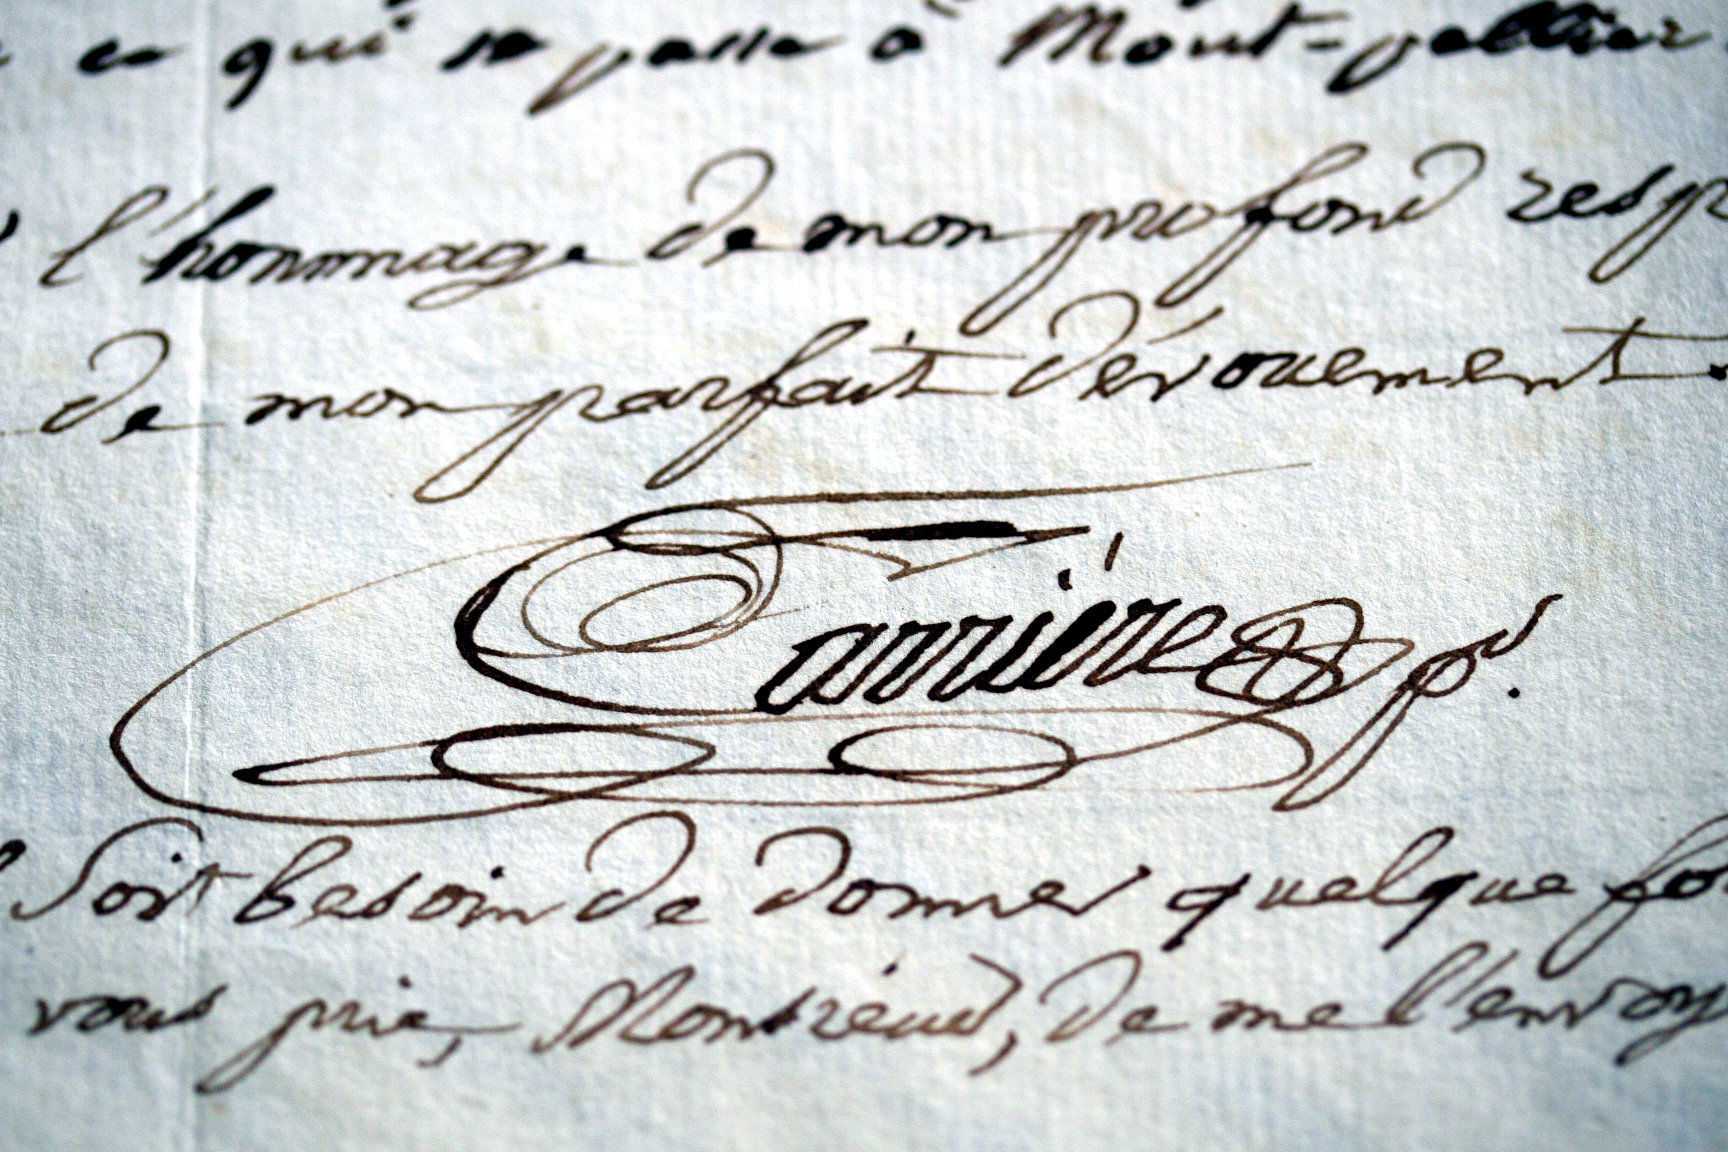 ce qui se passe à Mont-pellier
l'hommage de mon profond resp
de mon parfait dévouement.
Carrière
Soit besoin de donner quelque fo
vous prie, de me l'envoy